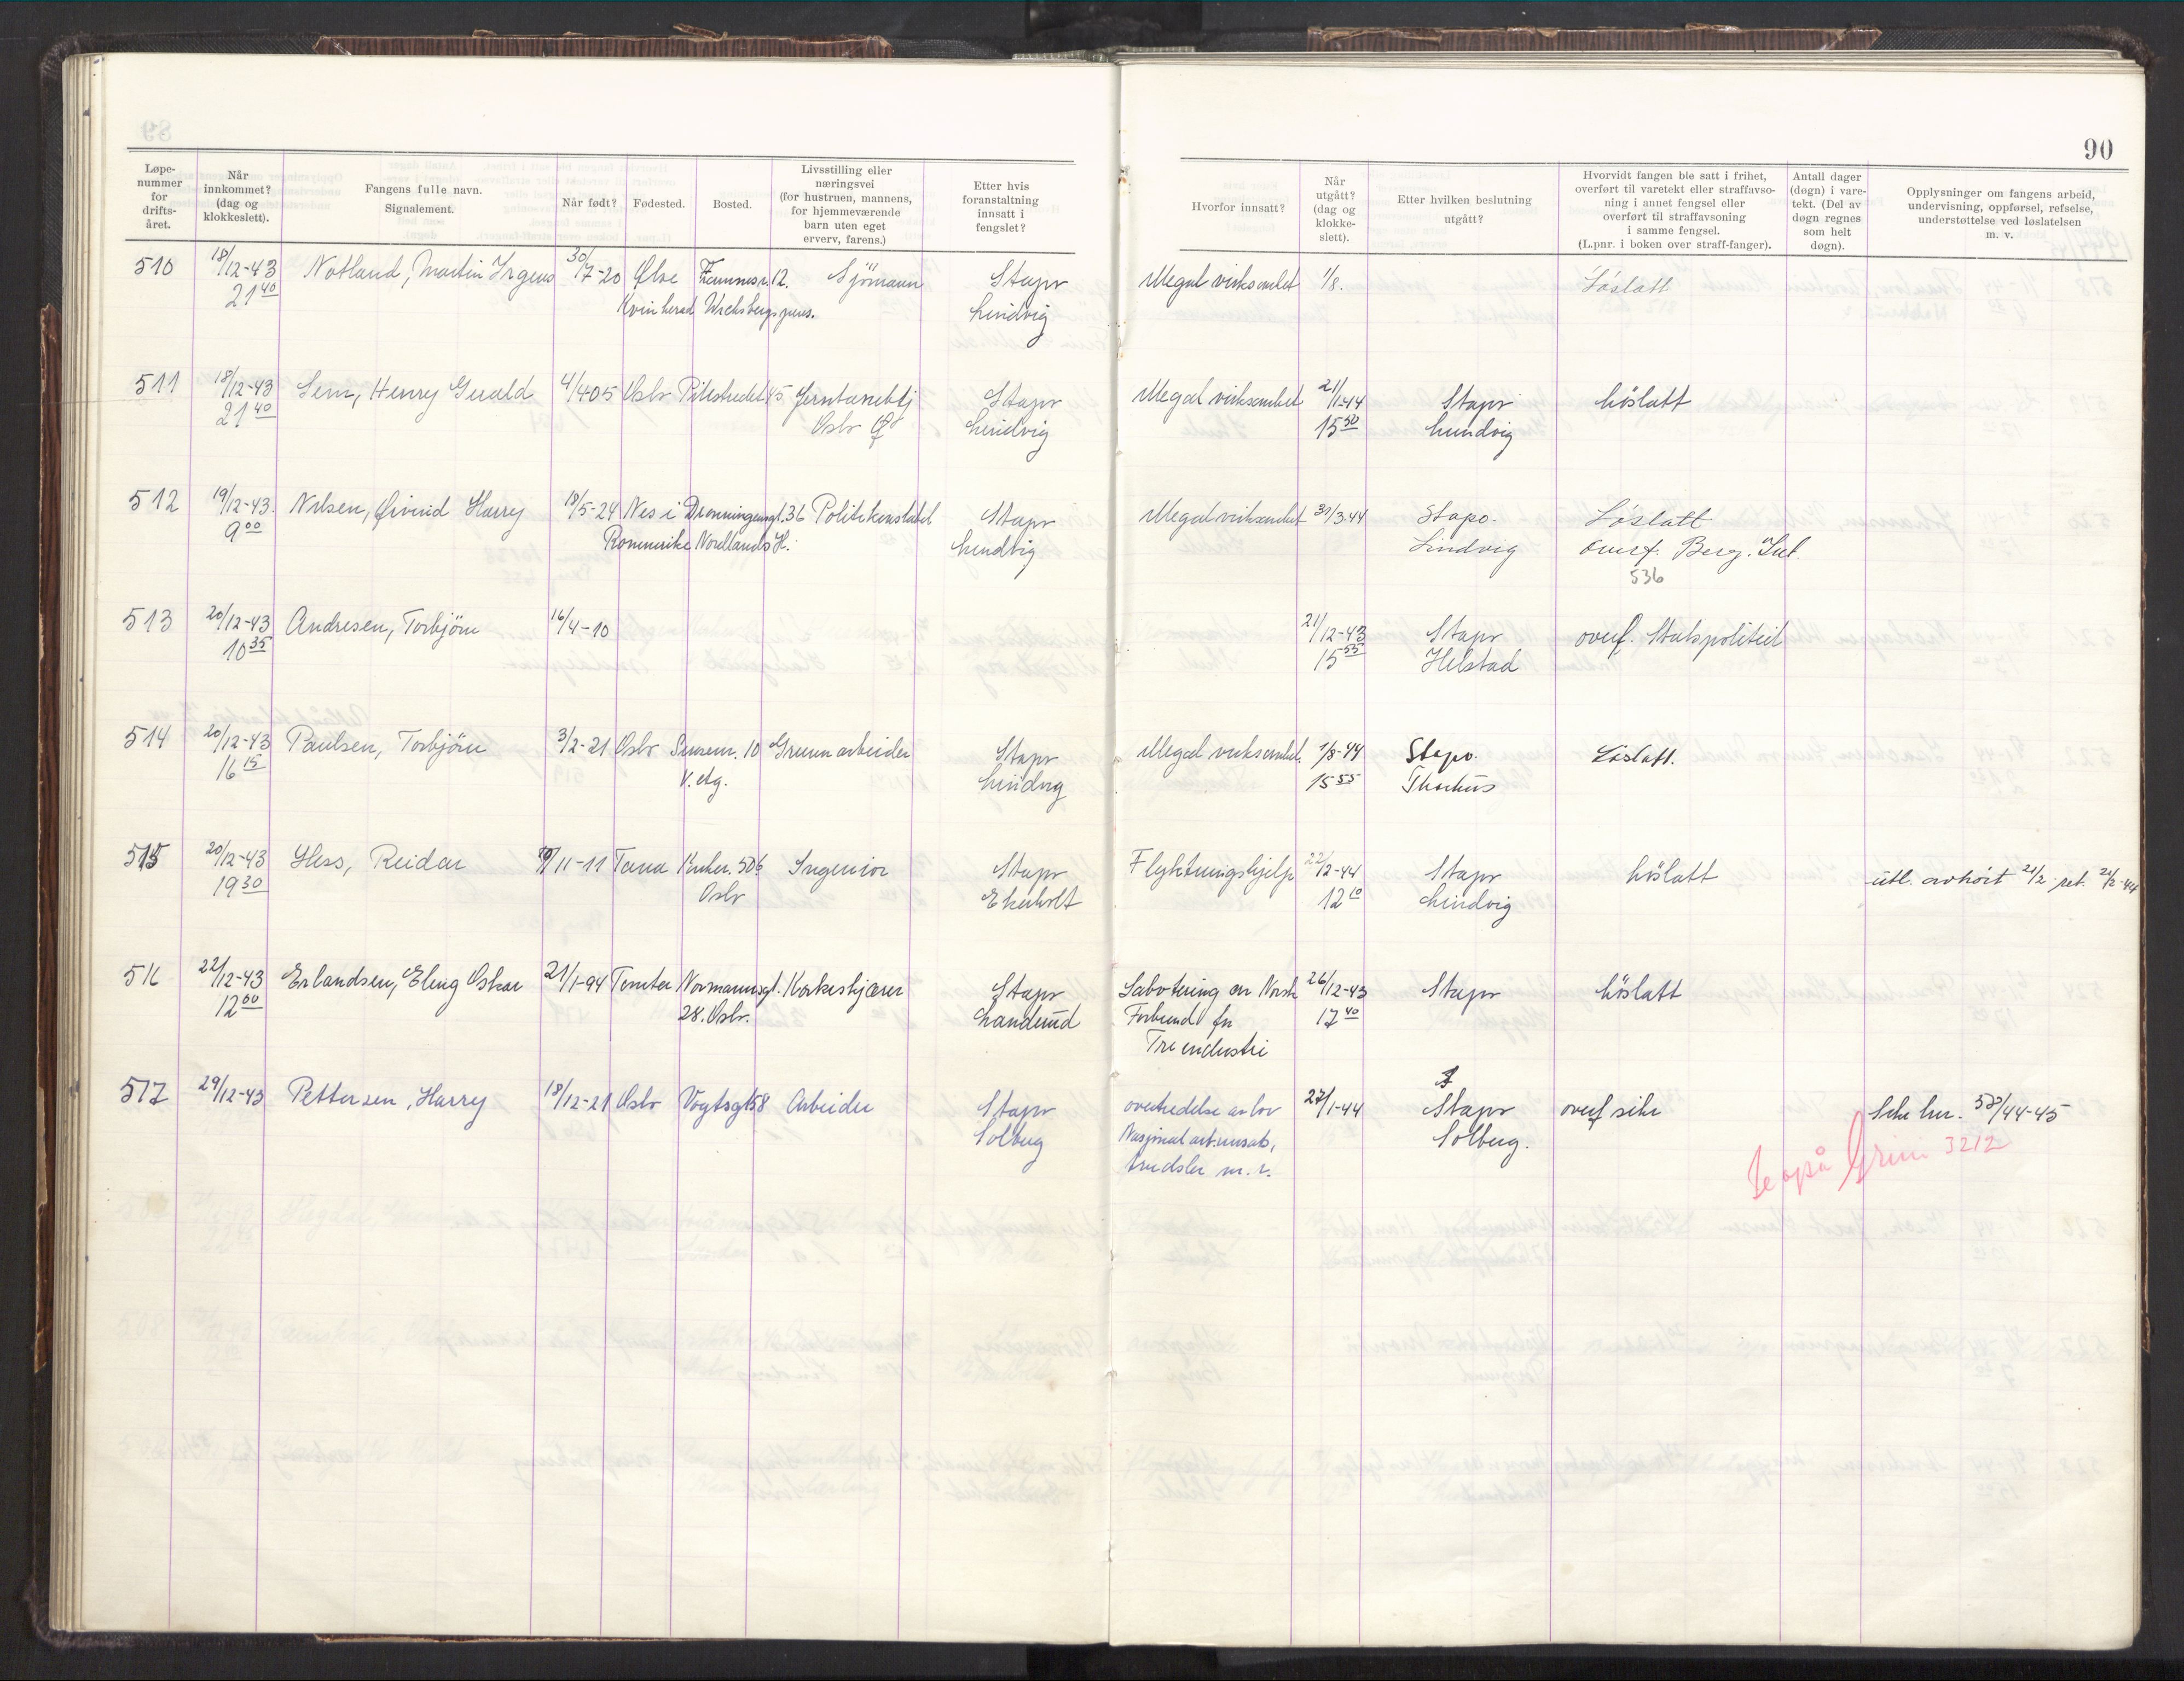 90
Løpe-
nummer
for
drifts-
året.
Når
innkommet?
(dag og
klokkeslett).
Fangens fulle navn.
Signalement.
Når født?
Fødested.
Bosted.
Livsstilling eller
næringsvei
(for hustruen, mannens,
for hjemmeværende
barn uten eget
erverv, farens.)
Etter hvis
foranstaltning
innsatt i
fengslet?
Hvorfor innsatt?
Når
utgått?
(dag og
klokke-
slett).
Etter hvilken beslutning
utgått?
Hvorvidt fangen ble satt i frihet,
overført til varetekt eller straffavso-
ning i annet fengsel eller
overført til straffavsoning
i samme fengsel.
(L.pnr. i boken over straff-fanger).
Antall dager
(døgn) i vare-
tekt. (Del av
døgn regnes
som helt
døgn).
Opplysninger om fangens arbeid,
undervisning, oppførsel, refselse,
understøttelse ved løslatelsen
m. v.
510 18/12-43 Notland, Martin Irgens 30/7-20 Ølve 12. Sjömann Stapo Illegal virksomhet 1/8. Löslatt
21 40 Kvinherad Lindvig
511 18/12-43 Sem, Henry Gerald 4/4-05 Oslo Pilestredet 45 Stapo Illegal virksomhet 21/1-44 Stapo Löslatt
21 40 Oslo Lindvig 15 50 Lindvig
512 19/12-43. Nilsen, Øivind Harry 18/5-24 Nes i Dronningensgt. 36 Politikonstabel Stapo Illegal virksomhet 31/3.44 Stapo. Löslatt
9 00 Romerike Nordlands H. Lindvig Lindvig overf. Berg. Int.
536
513 20/12-43 Andresen, Torbjörn 16/4-10 21/12-43 Stapo overf. Statspolitiet
10 35 15 55 Helstad
514 20/12-43 Paulsen, Torbjörn 3/2-21 Oslo 10 Grovarbeider Stapo Illegal virksomhet. 1/8-44 Stapo. Löslatt.
16 15 V. etg. Lindvig 15 55
515 20/12-43 Hess, Reidar 11-11 Tana 50b Ingeniör Stapo Flyktningshjelp 22/2-44 Stapo Löslatt utl. avhört 21/2. ret. 21/2-44
19 30 Oslo Ekerholt 12 10 Lindvig
516 22/12-43 Erlandsen, Elling Oskar 21/1-94 Tomter Normannsgt. Korkeskjærer Stapo Sabotering av Norsk 26/12-43 Stapo Löslatt
12 00 28. Oslo. Landerud Forbund for 17 40
Treindustri
517 29/12-43 Pettersen, Harry 18/12-21 Oslo Vogtsgt 58 Arbeider Stapo overtredelse av lov 27/1-44 Stapo overf. sikr. Sikr. lnr. 58/44-45
Solberg Nasjonal arb.innsats, Solberg.
trudsler m. v.
Se også Grini 3212